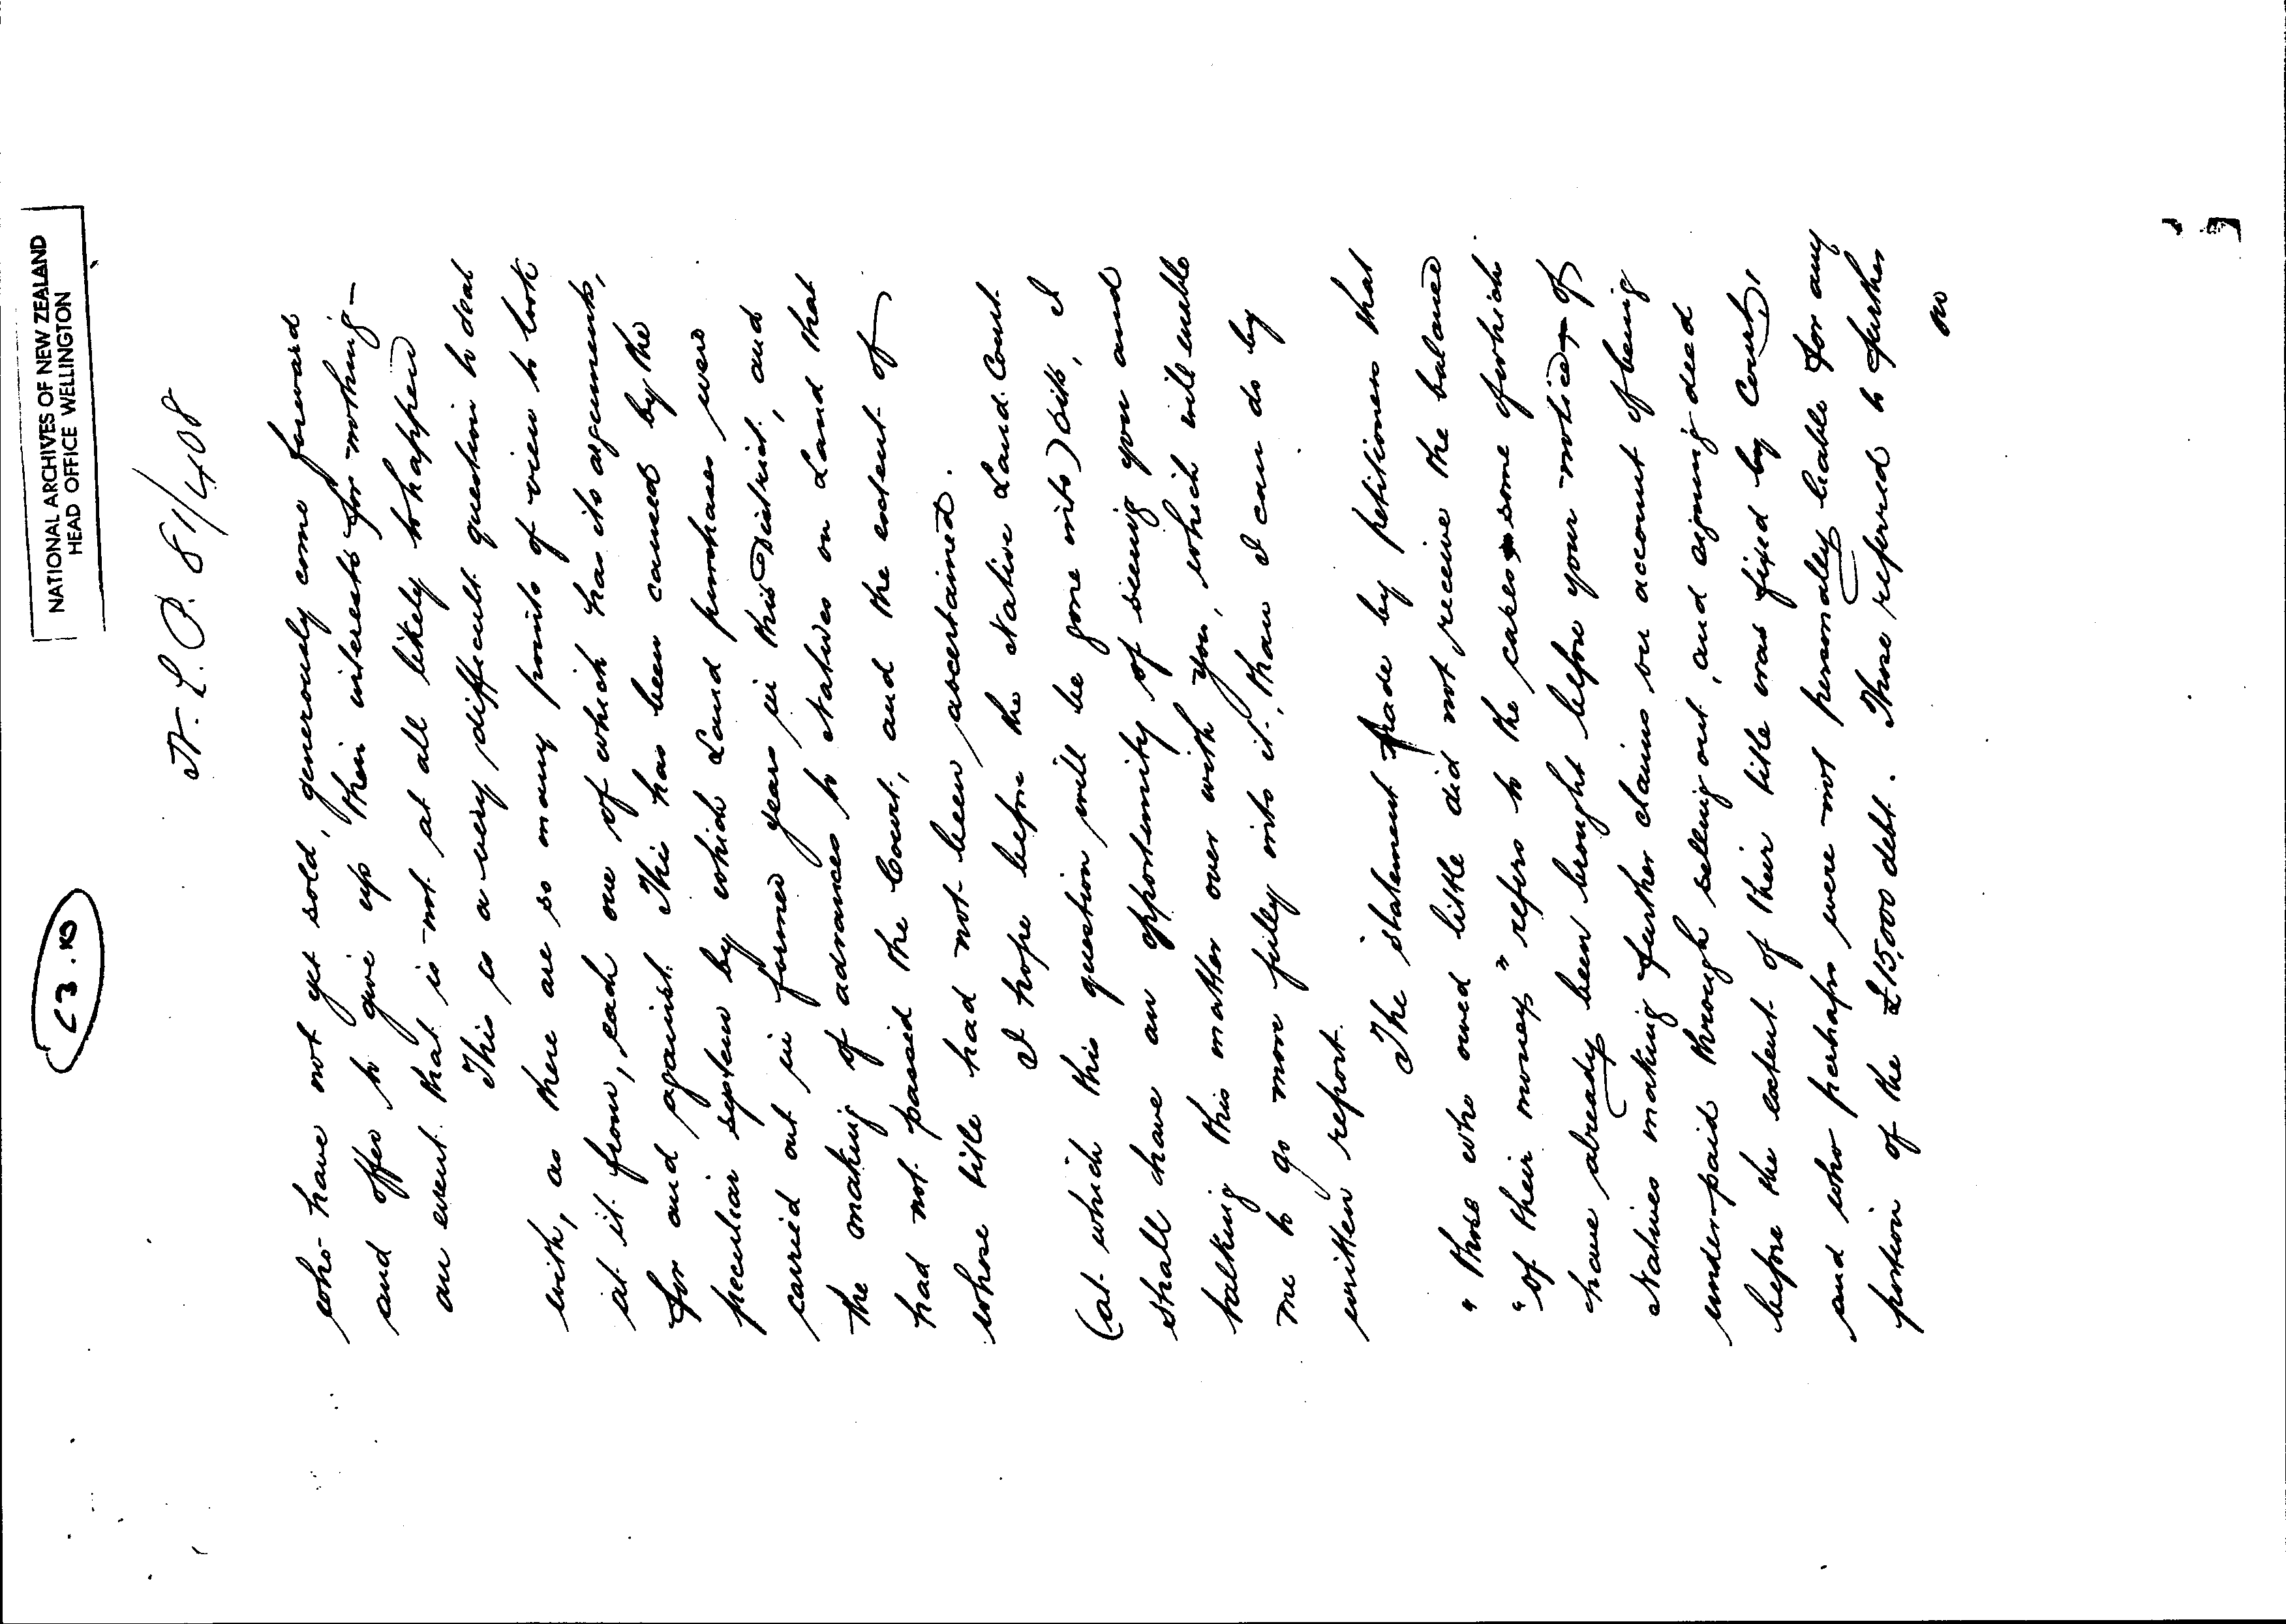 NATIONAL ARCHIVES OF NEW ZEALAND
HEAD OFFICE WELLINGTON
C3.10
N.L.P. 81/408
who have not yet sold, generously come forward
and offer to give up their interests for nothing —
an event that is not at all likely to happen
This is a very difficult question to deal
with, as there are so many points of view to look
at it from, each one of which has its arguments,
for and against. This has been caused by the
peculiar system by which Land purchases were
carried out in former years in this District, and
the making of advances to Natives on Land that
had not passed the Court, and the extent of
whose title had not been ascertained.
I hope before the Native Land Court
(at which this question will be gone into) sits, I
shall have an opportunity of seeing you and
talking this matter over with you, which will enable
me to go more fully into it, than I can do by
written report.
The statement made by petitioners that
"those who owned little did not receive the balance
"of their money" refers to the cases some of which
have already been brought before your notice — of
Natives making further claims on account of being
under-paid through selling out, and signing deed
before the extent of their title was fixed by Court,
and who perhaps were not personally liable for any
portion of the £15,000 debt. Those referred to further
on